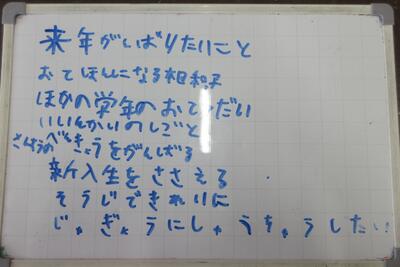 来年がんばりたいこと
おてほんになる相和子
ほかの学年のおてつだい
いいんかいのしごと
さんすうのべんきょうをがんばる
新入生をささえる
そうじできれいに
じゅぎょうにしゅうちゅうしたい